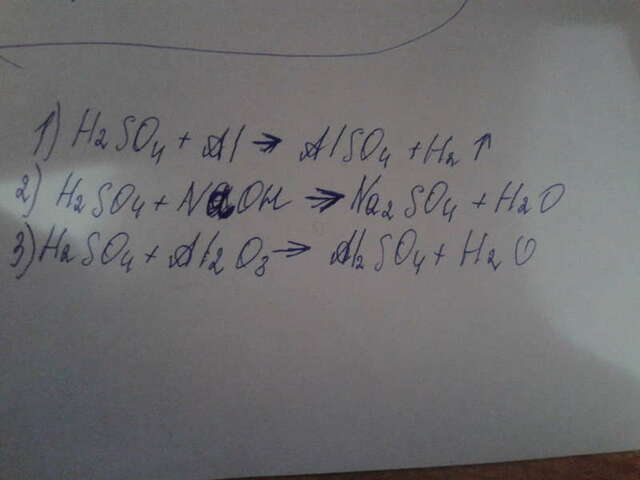 1) H₂SO₄ + Al → AlSO₄ + H₂ ↑
2) H₂SO₄ + NaOH → Na₂SO₄ + H₂O
3) H₂SO₄ + Al₂O₃ → Al₂SO₄ + H₂O